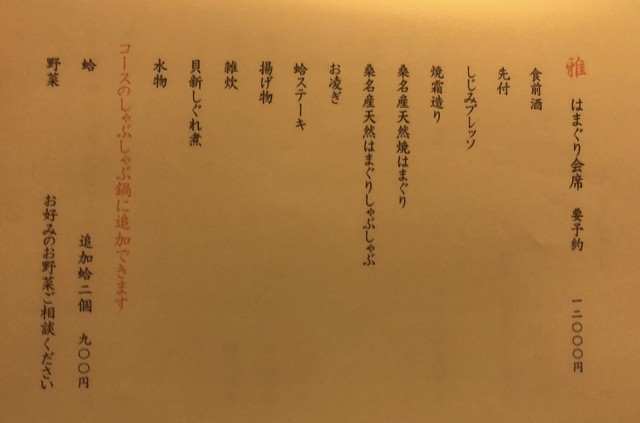 雅 はまぐり会席 要予約 一二〇〇〇円
食前酒
先付
しじみプレッソ
焼霜造り
桑名産天然焼はまぐり
桑名産天然はまぐりしゃぶしゃぶ
お凌ぎ
蛤ステーキ
揚げ物
雑炊
貝新しぐれ煮
水物
コースのしゃぶしゃぶ鍋に追加できます
蛤 追加蛤二個 九〇〇円
野菜 お好みのお野菜ご相談ください